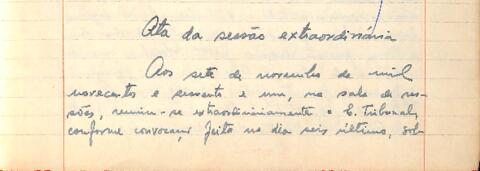 Ata da sessão extraordinária
Aos sete de novembro de mil
novecentos e sessenta e um, na sala de ses-
sões, reuniu-se extraordinàriamente o E. Tribunal,
conforme convocação feita no dia seis último, sob